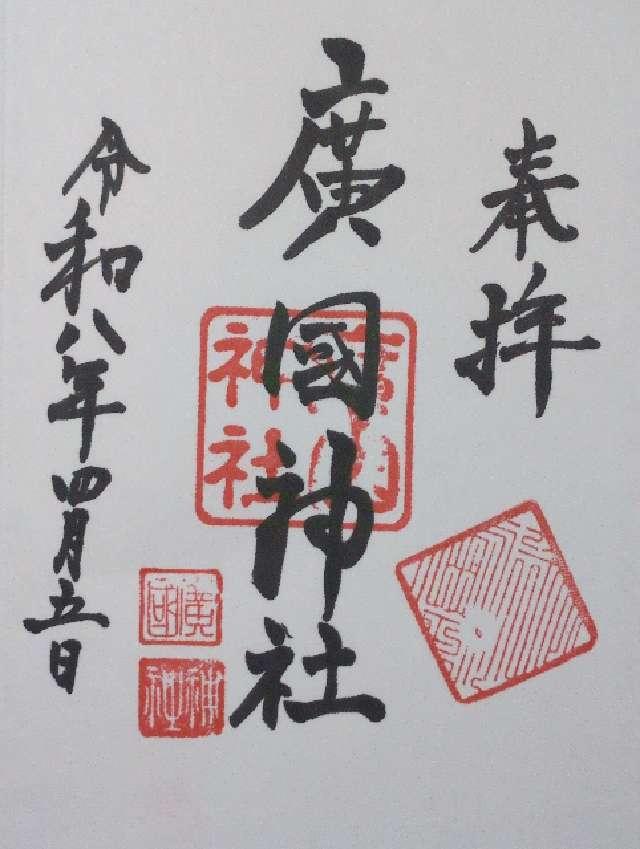 奉拝
廣國神社
令和八年四月五日
廣國
神社
廣國
神社